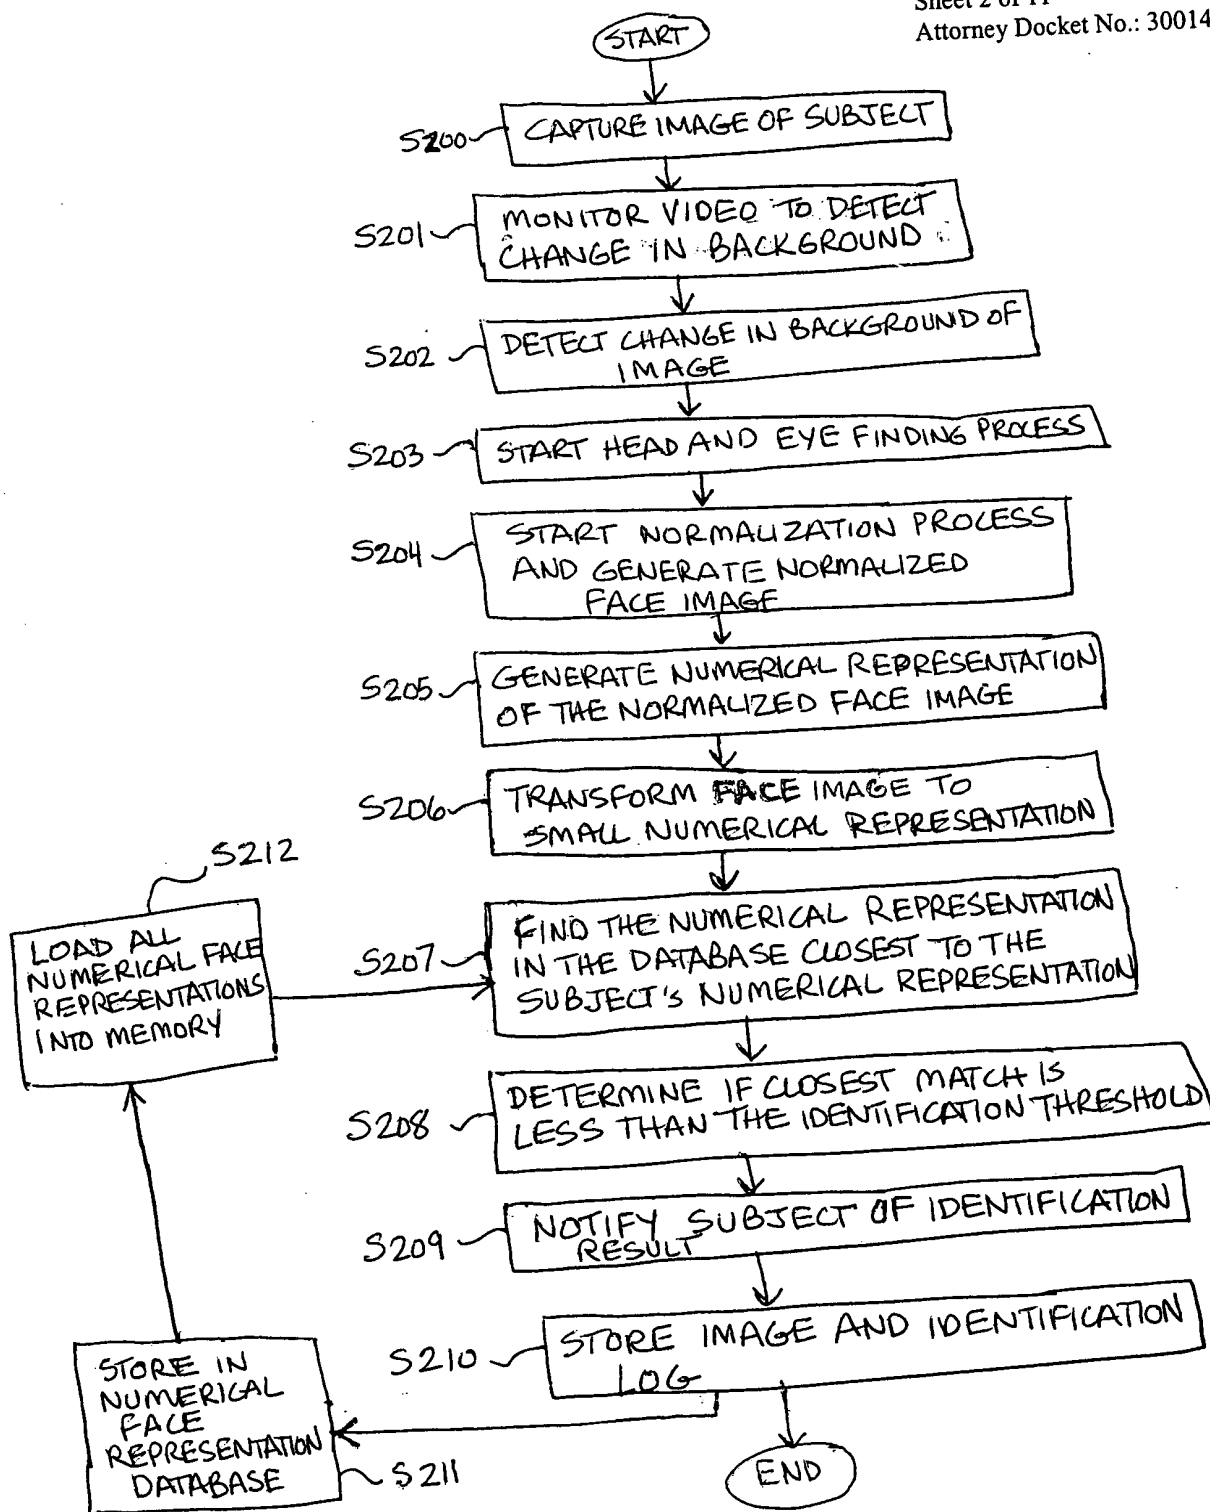 Sheet 2 of 11
Attorney Docket No.: 30014
START
S200
CAPTURE IMAGE OF SUBJECT
S201
MONITOR VIDEO TO DETECT
CHANGE IN BACKGROUND
S202
DETECT CHANGE IN BACKGROUND OF
IMAGE
S203
START HEAD AND EYE FINDING PROCESS
S204
START NORMALIZATION PROCESS
AND GENERATE NORMALIZED
FACE IMAGE
S205
GENERATE NUMERICAL REPRESENTATION
OF THE NORMALIZED FACE IMAGE
S206
TRANSFORM FACE IMAGE TO
SMALL NUMERICAL REPRESENTATION
S212
LOAD ALL
NUMERICAL FACE
REPRESENTATIONS
INTO MEMORY
S207
FIND THE NUMERICAL REPRESENTATION
IN THE DATABASE CLOSEST TO THE
SUBJECT'S NUMERICAL REPRESENTATION
S208
DETERMINE IF CLOSEST MATCH IS
LESS THAN THE IDENTIFICATION THRESHOLD
S209
NOTIFY SUBJECT OF IDENTIFICATION
RESULT
S210
STORE IMAGE AND IDENTIFICATION
LOG
STORE IN
NUMERICAL
FACE
REPRESENTATION
DATABASE
S211
END